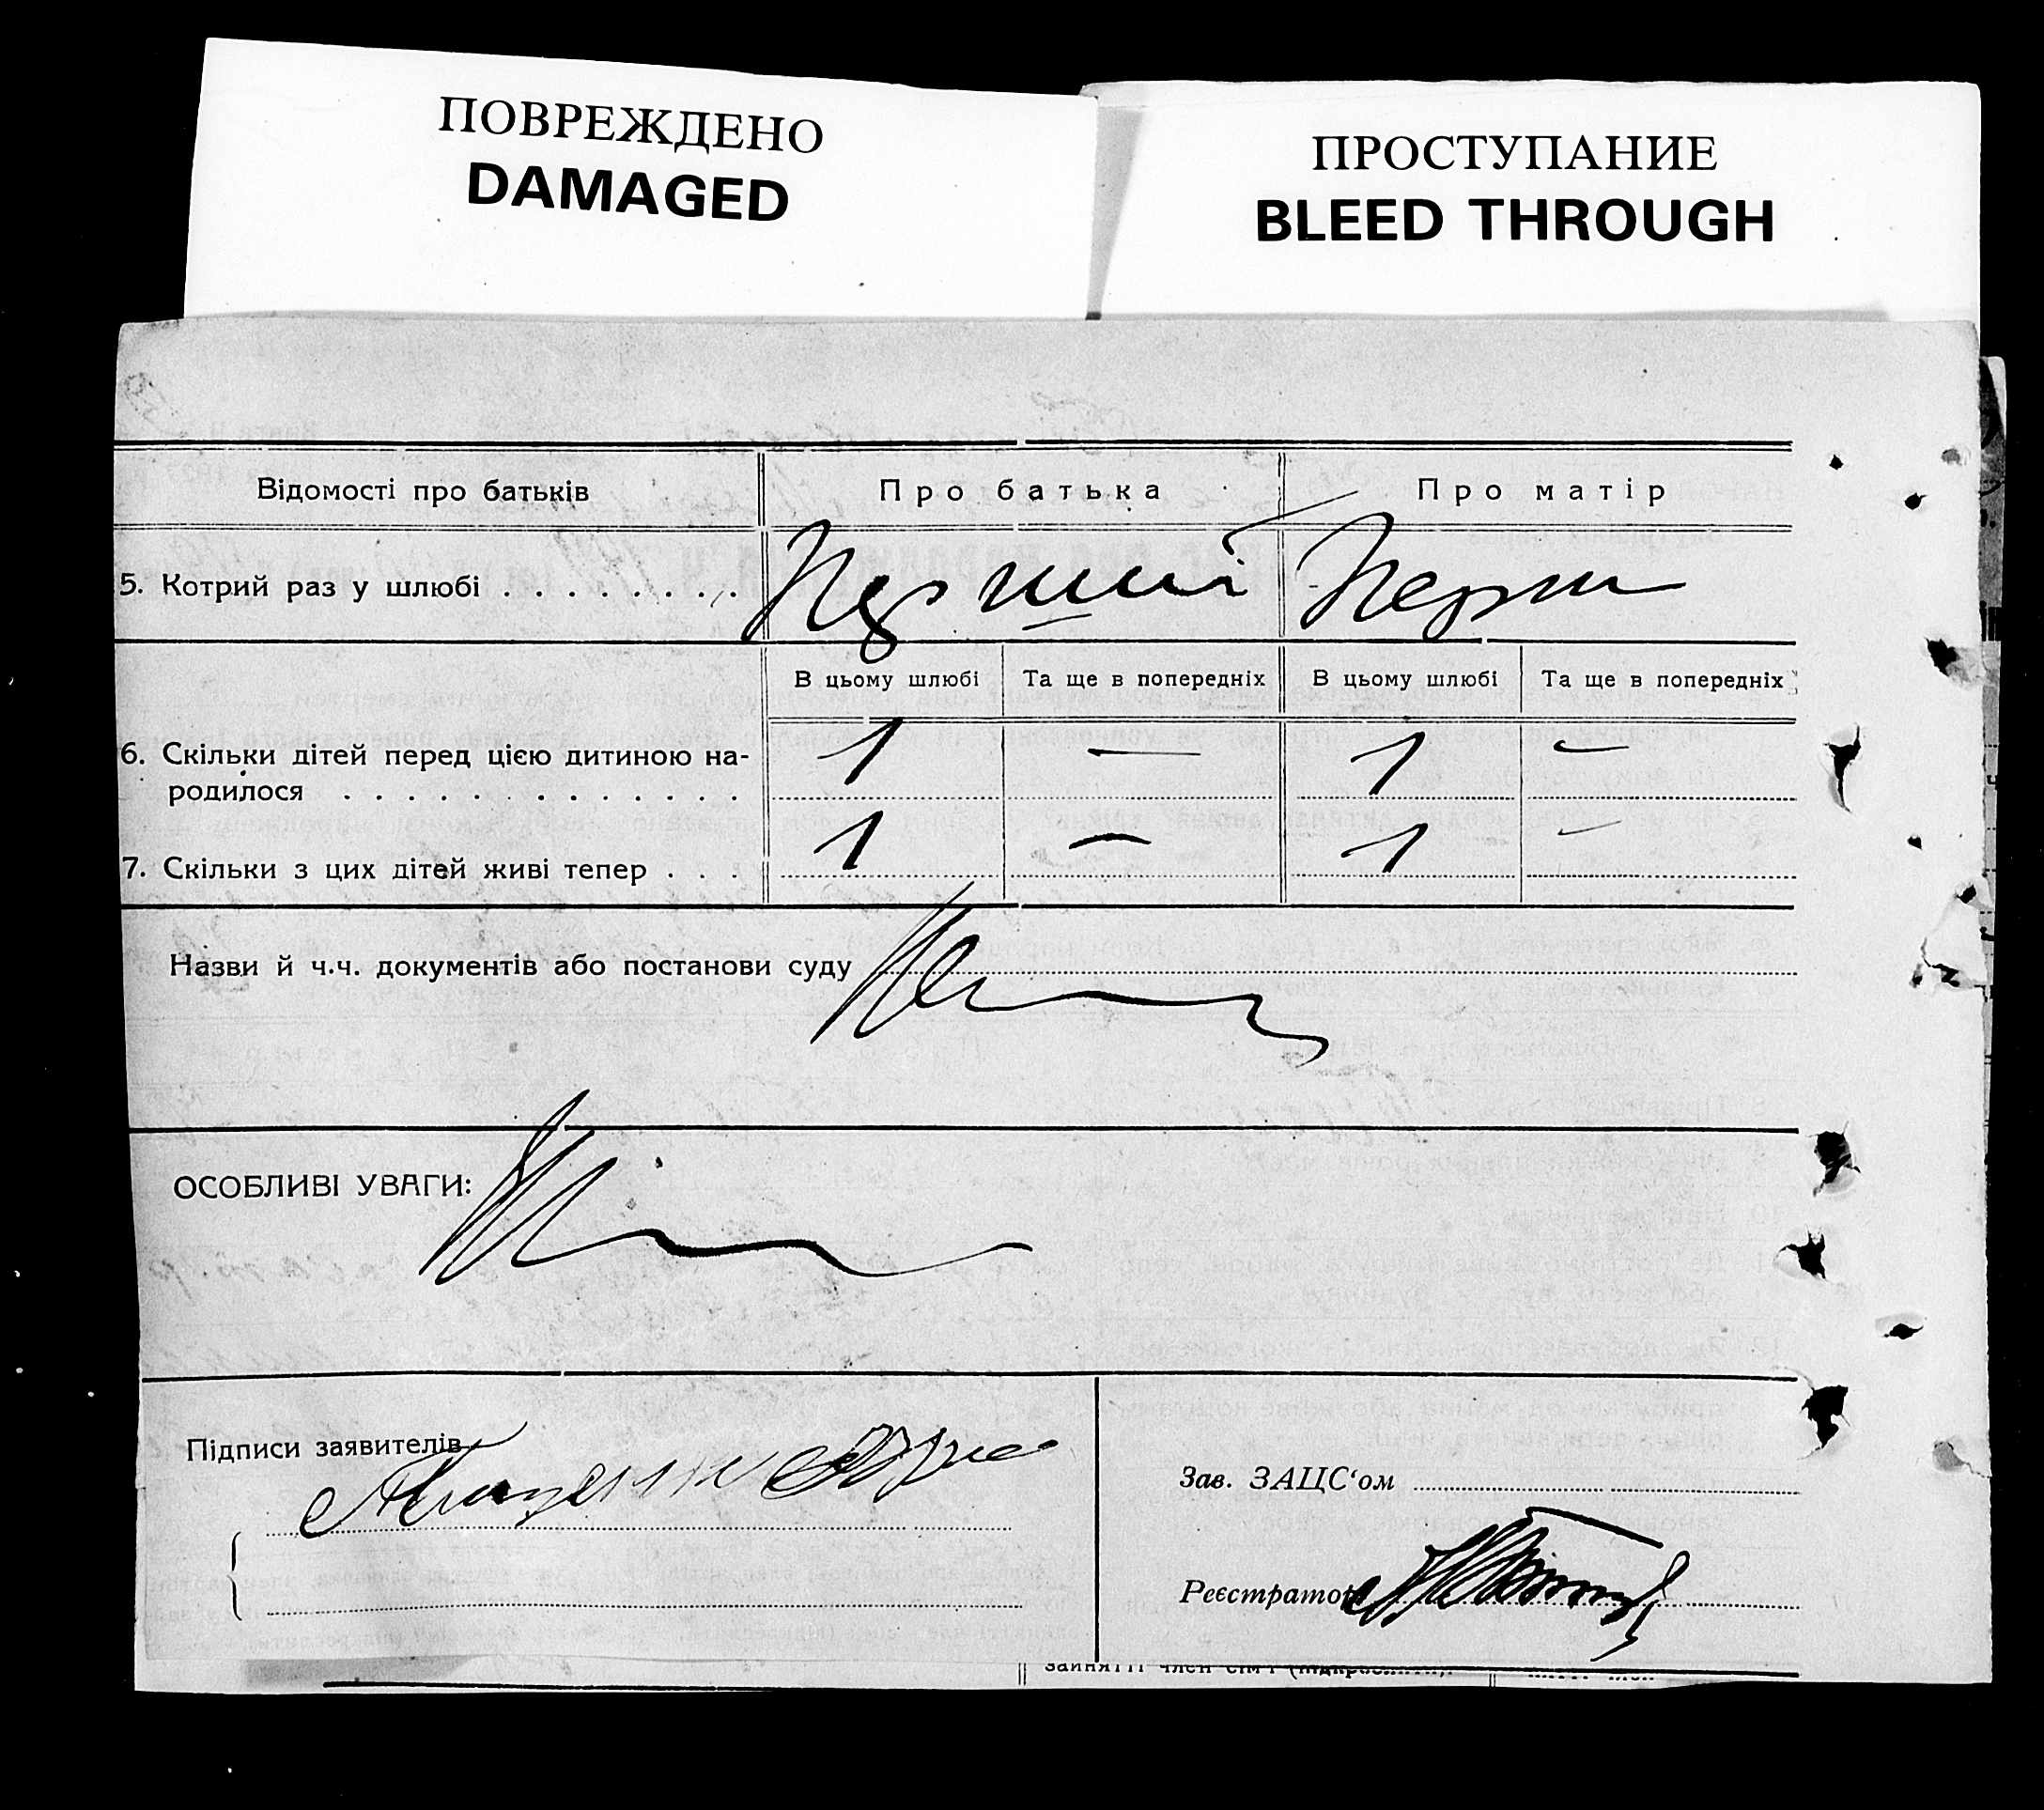 ПОВРЕЖДЕНО
DAMAGED
ПРОСТУПАНИЕ
BLEED THROUGH
Відомості про батьків Про батька Про матір
5. Котрий раз у шлюбі . . . . . . . . Перший Перш
В цьому шлюбі Та ще в попередніх В цьому шлюбі Та ще в попередніх
6. Скільки дітей перед цією дитиною на-
родилося . . . . . . . . . . . . . 1 — 1 —
7. Скільки з цих дітей живі тепер . . . 1 — 1 —
Назви й ч.ч. документів або постанови суду
ОСОБЛИВІ УВАГИ:
Підписи заявителів
Зав. ЗАЦС‘ом
Реєстратор